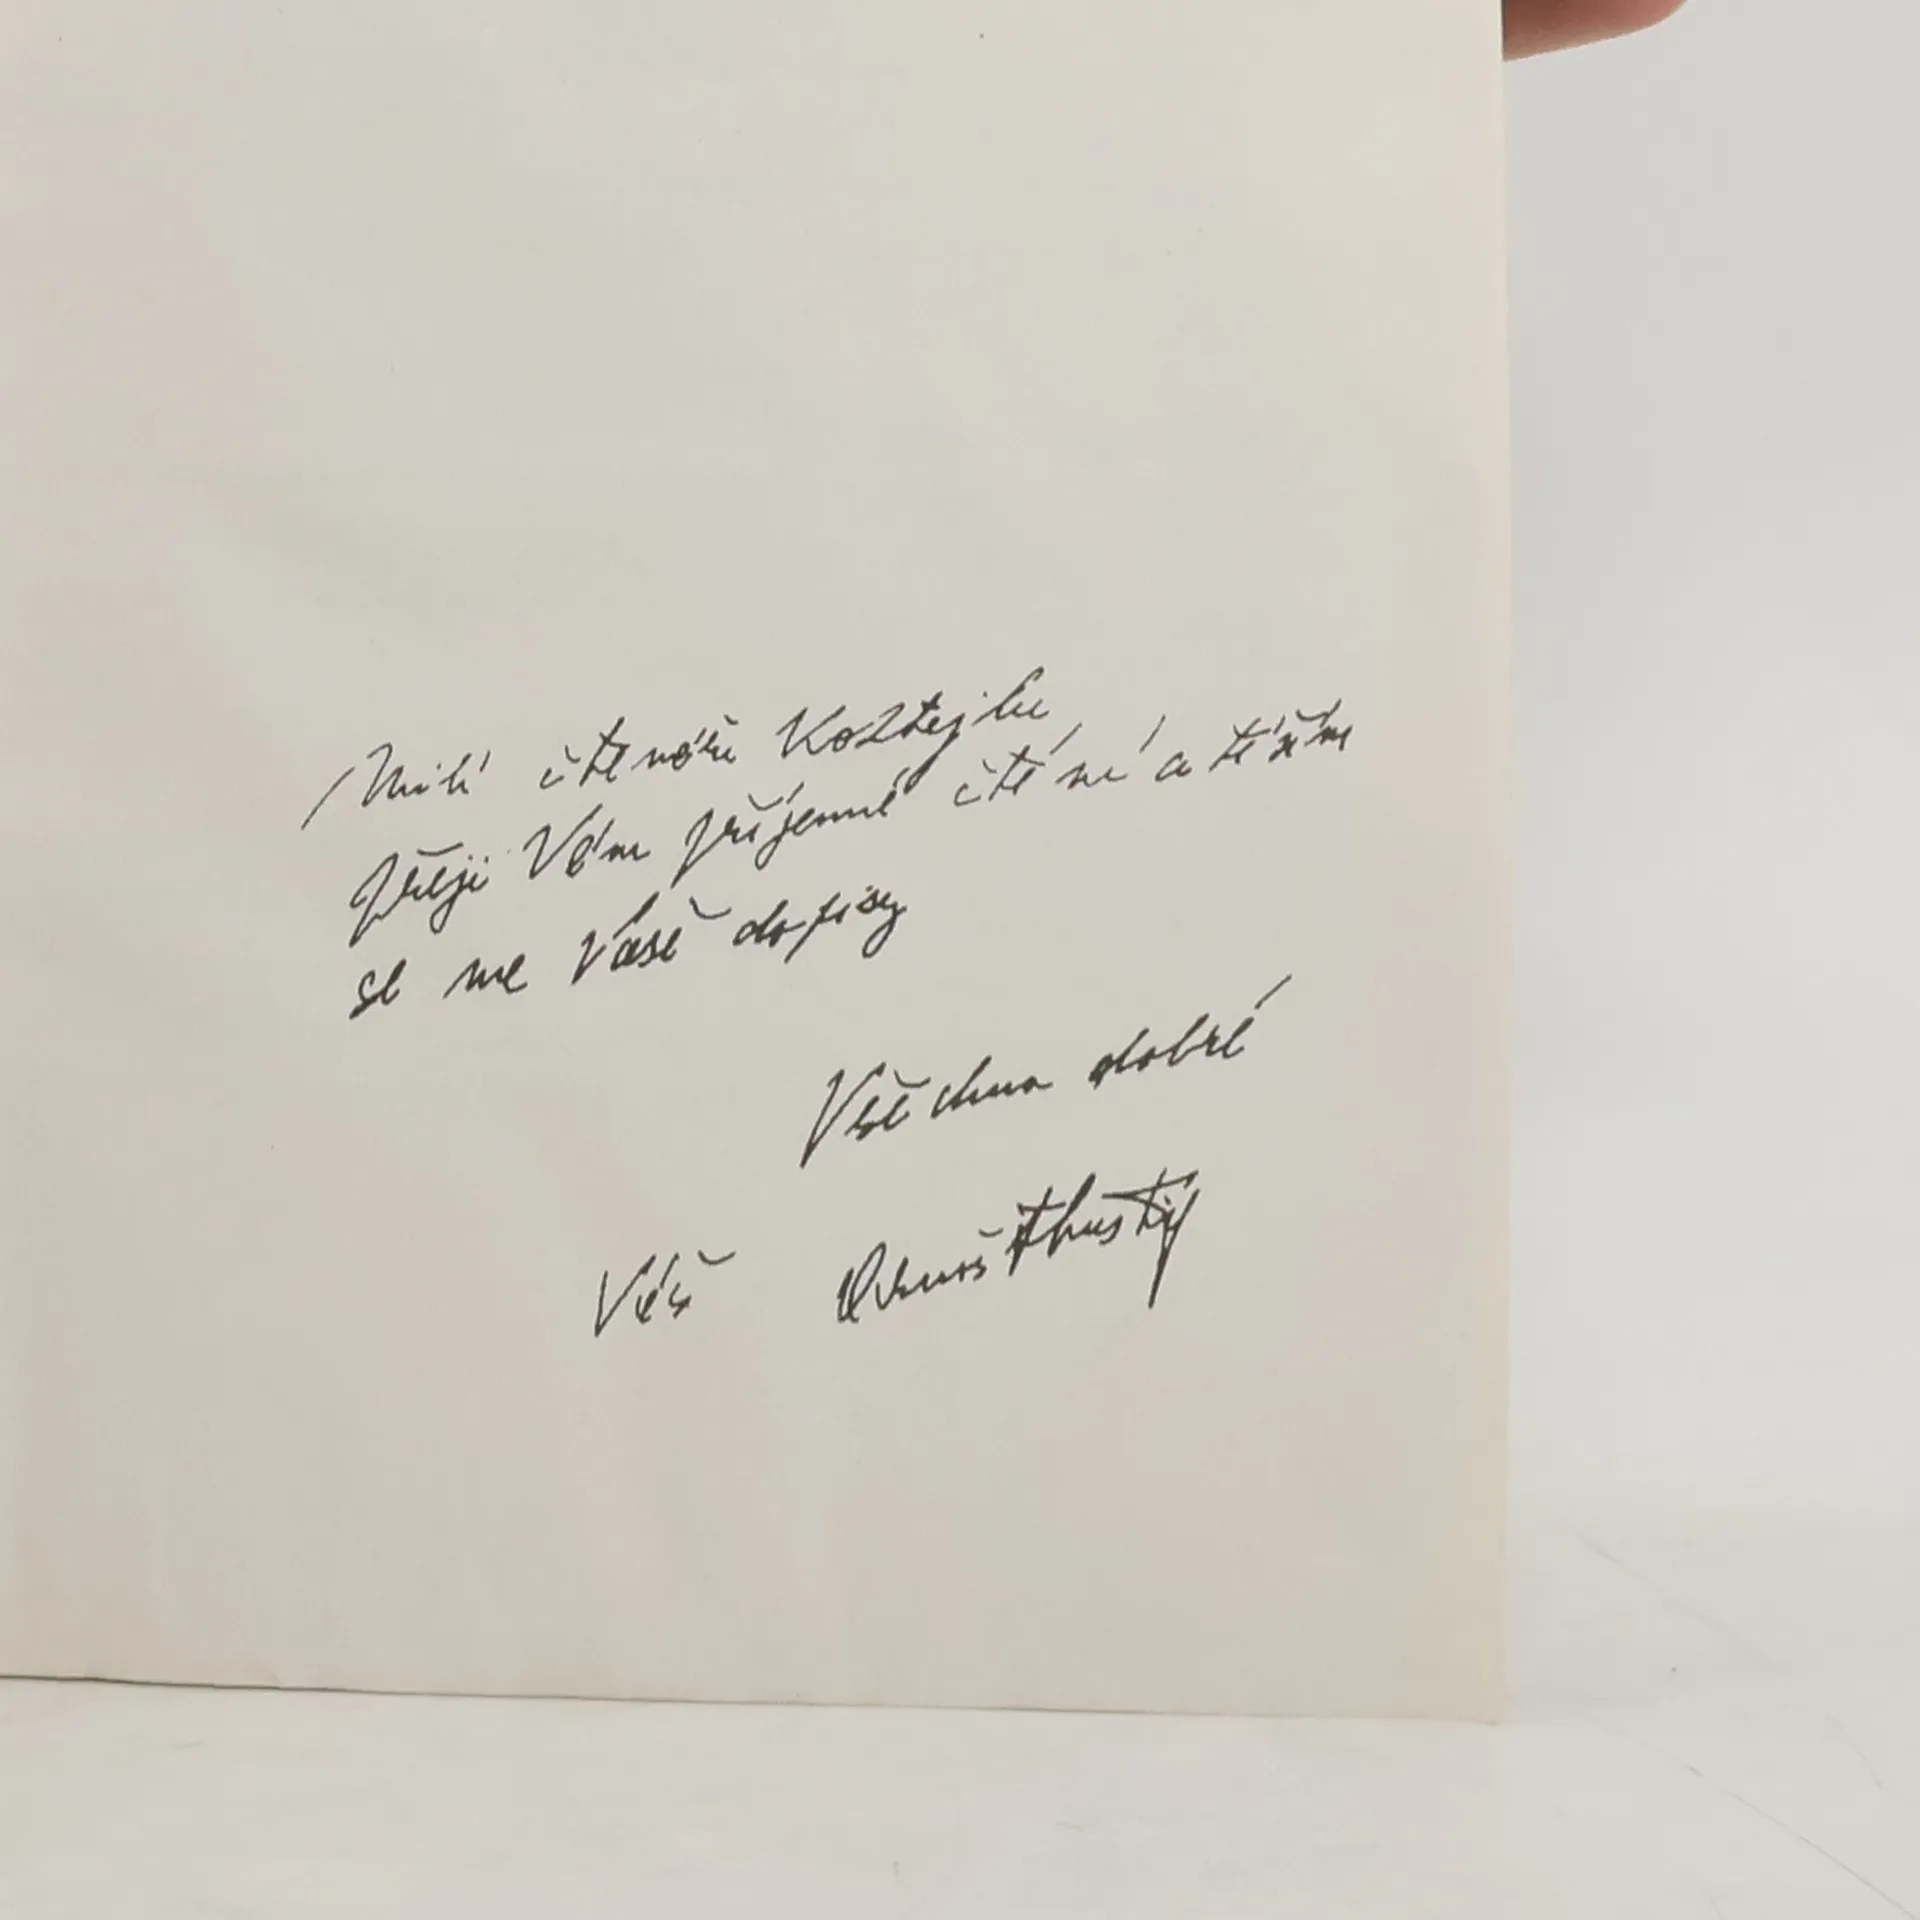 Milí čtenáři Koktejlu
přeji Vám příjemné čtení a těším
se na Vaše dopisy
Všechno dobré
Váš